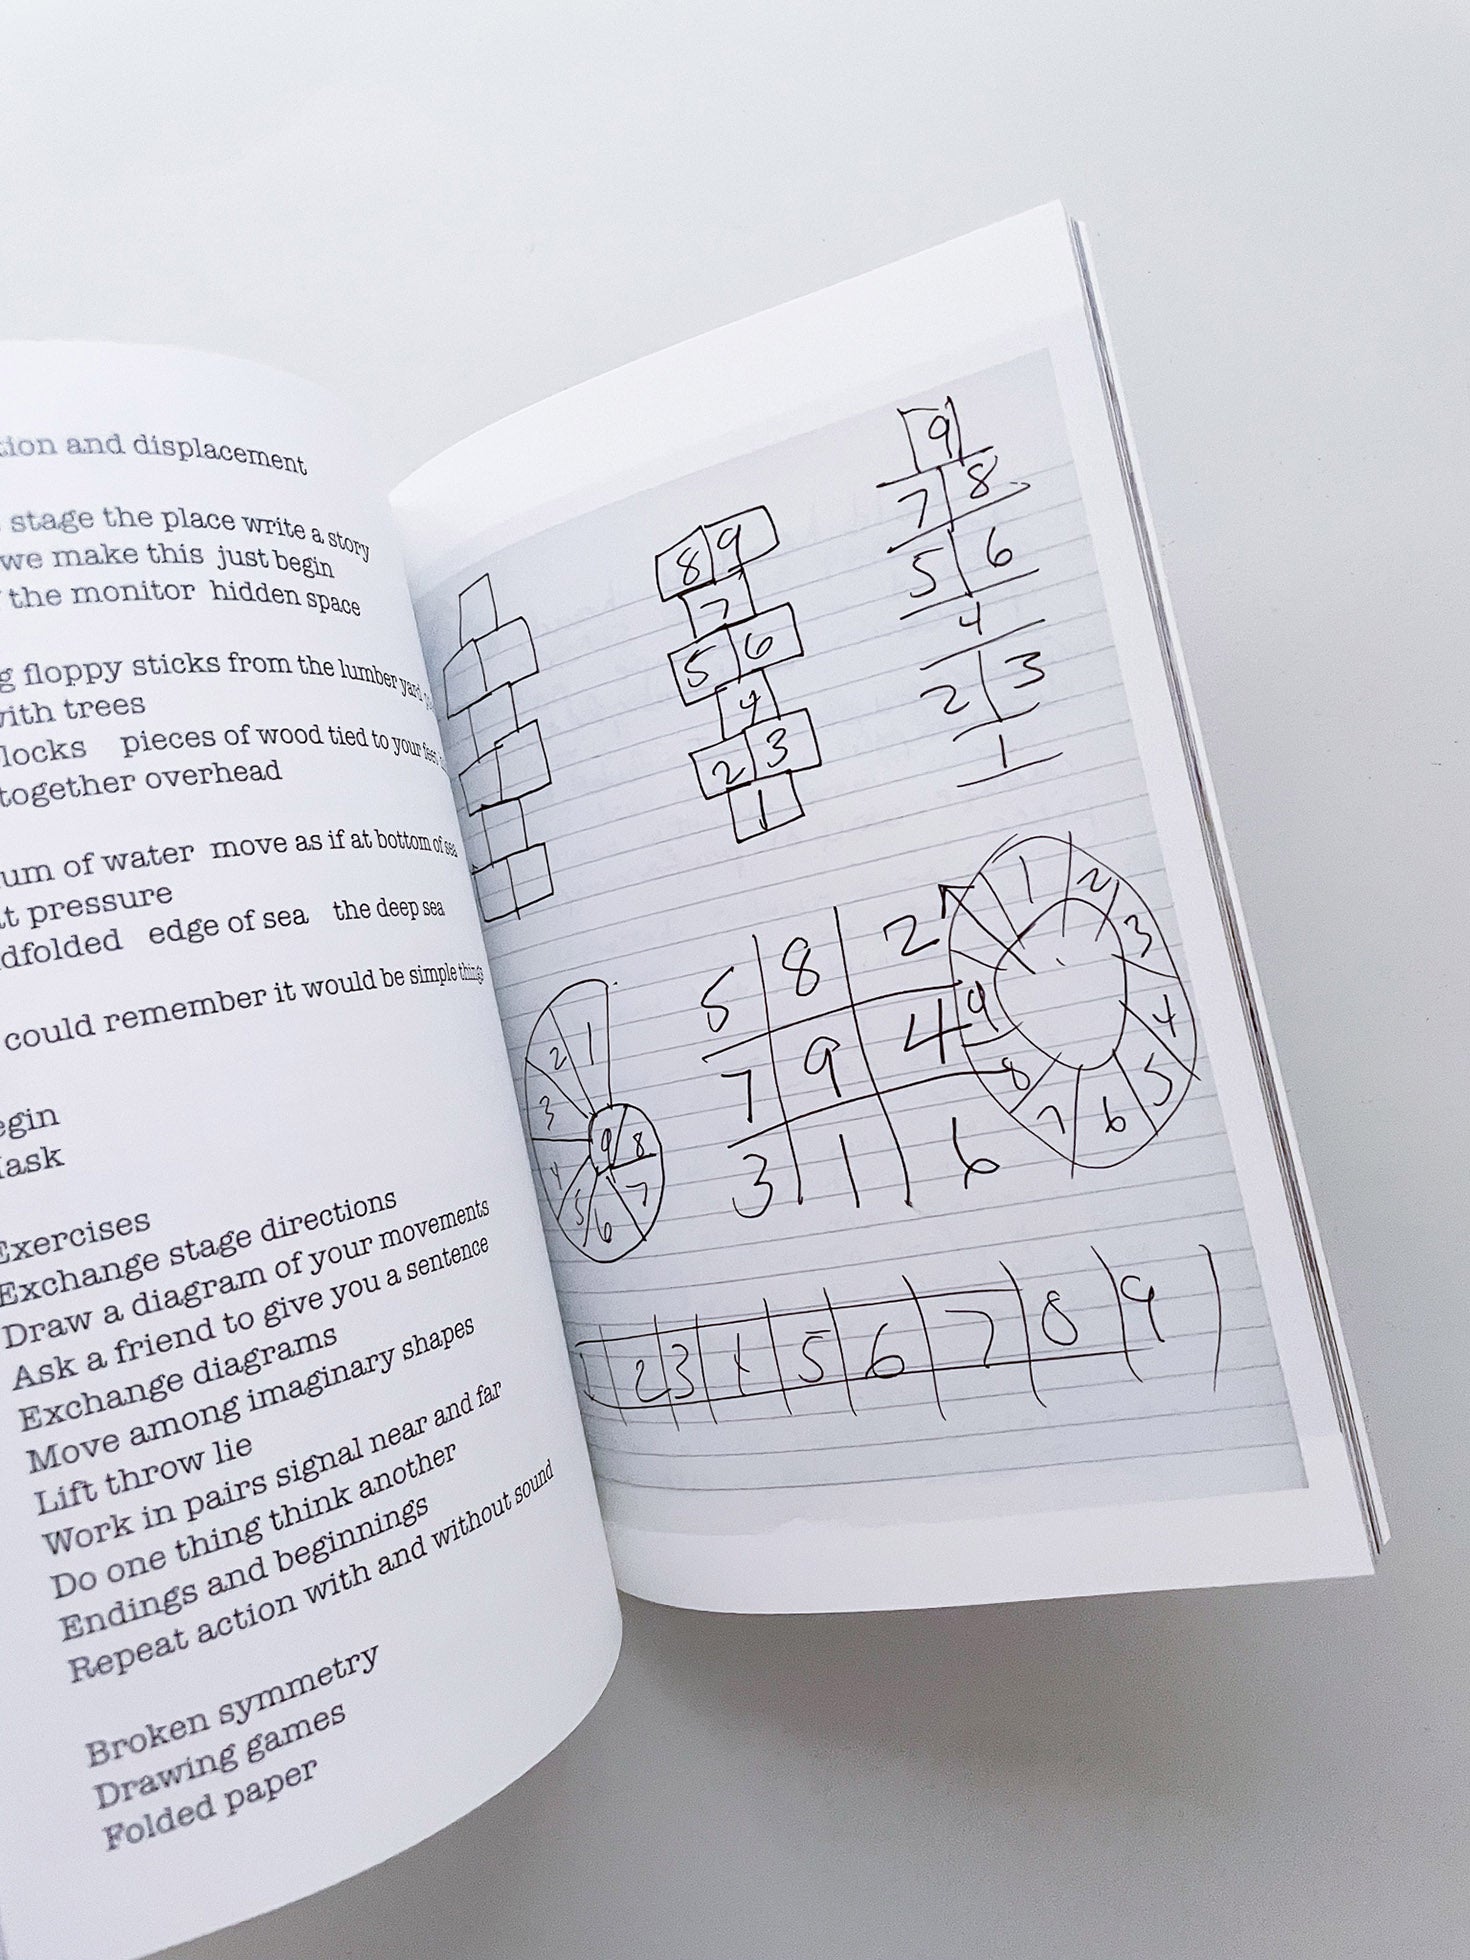 and displacement
stage the place write a story
we make this just begin
the monitor hidden space
floppy sticks from the lumber yard
with trees
pieces of wood tied to your feet
together overhead
of water move as if at bottom of sea
pressure
edge of sea the deep sea
could remember it would be simple things
Exercises
Exchange stage directions
Draw a diagram of your movements
Ask a friend to give you a sentence
Exchange diagrams
Move among imaginary shapes
Lift throw lie
Work in pairs signal near and far
Do one thing think another
Endings and beginnings
Repeat action with and without sound
Broken symmetry
Drawing games
Folded paper
8 9
7
5 6
4
2 3
1
9
7 8
5 6
4
2 3
1
1 2 3 4 5 6 7 8 9
5 8 2
7 9 4
3 1 6
1 2 3 4 5 6 7 8 9
2 3 4 5 6 7 8 9